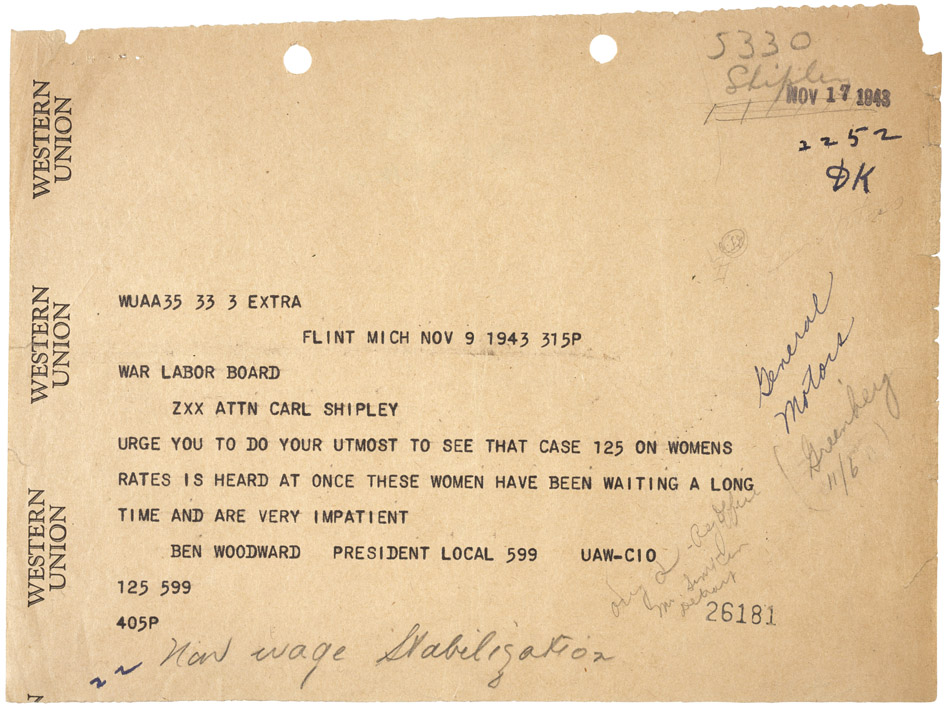 5330
Shipley
NOV 17 1943
2252
OK
WESTERN
UNION
WESTERN
UNION
WESTERN
UNION
WUAA35 33 3 EXTRA
FLINT MICH NOV 9 1943 315P
WAR LABOR BOARD
ZXX ATTN CARL SHIPLEY
URGE YOU TO DO YOUR UTMOST TO SEE THAT CASE 125 ON WOMENS
RATES IS HEARD AT ONCE THESE WOMEN HAVE BEEN WAITING A LONG
TIME AND ARE VERY IMPATIENT
BEN WOODWARD PRESIDENT LOCAL 599 UAW-CIO
125 599
405P
General
Motors
(Greenberg
11/6)
Detroit
26181
Non wage Stabilization
22